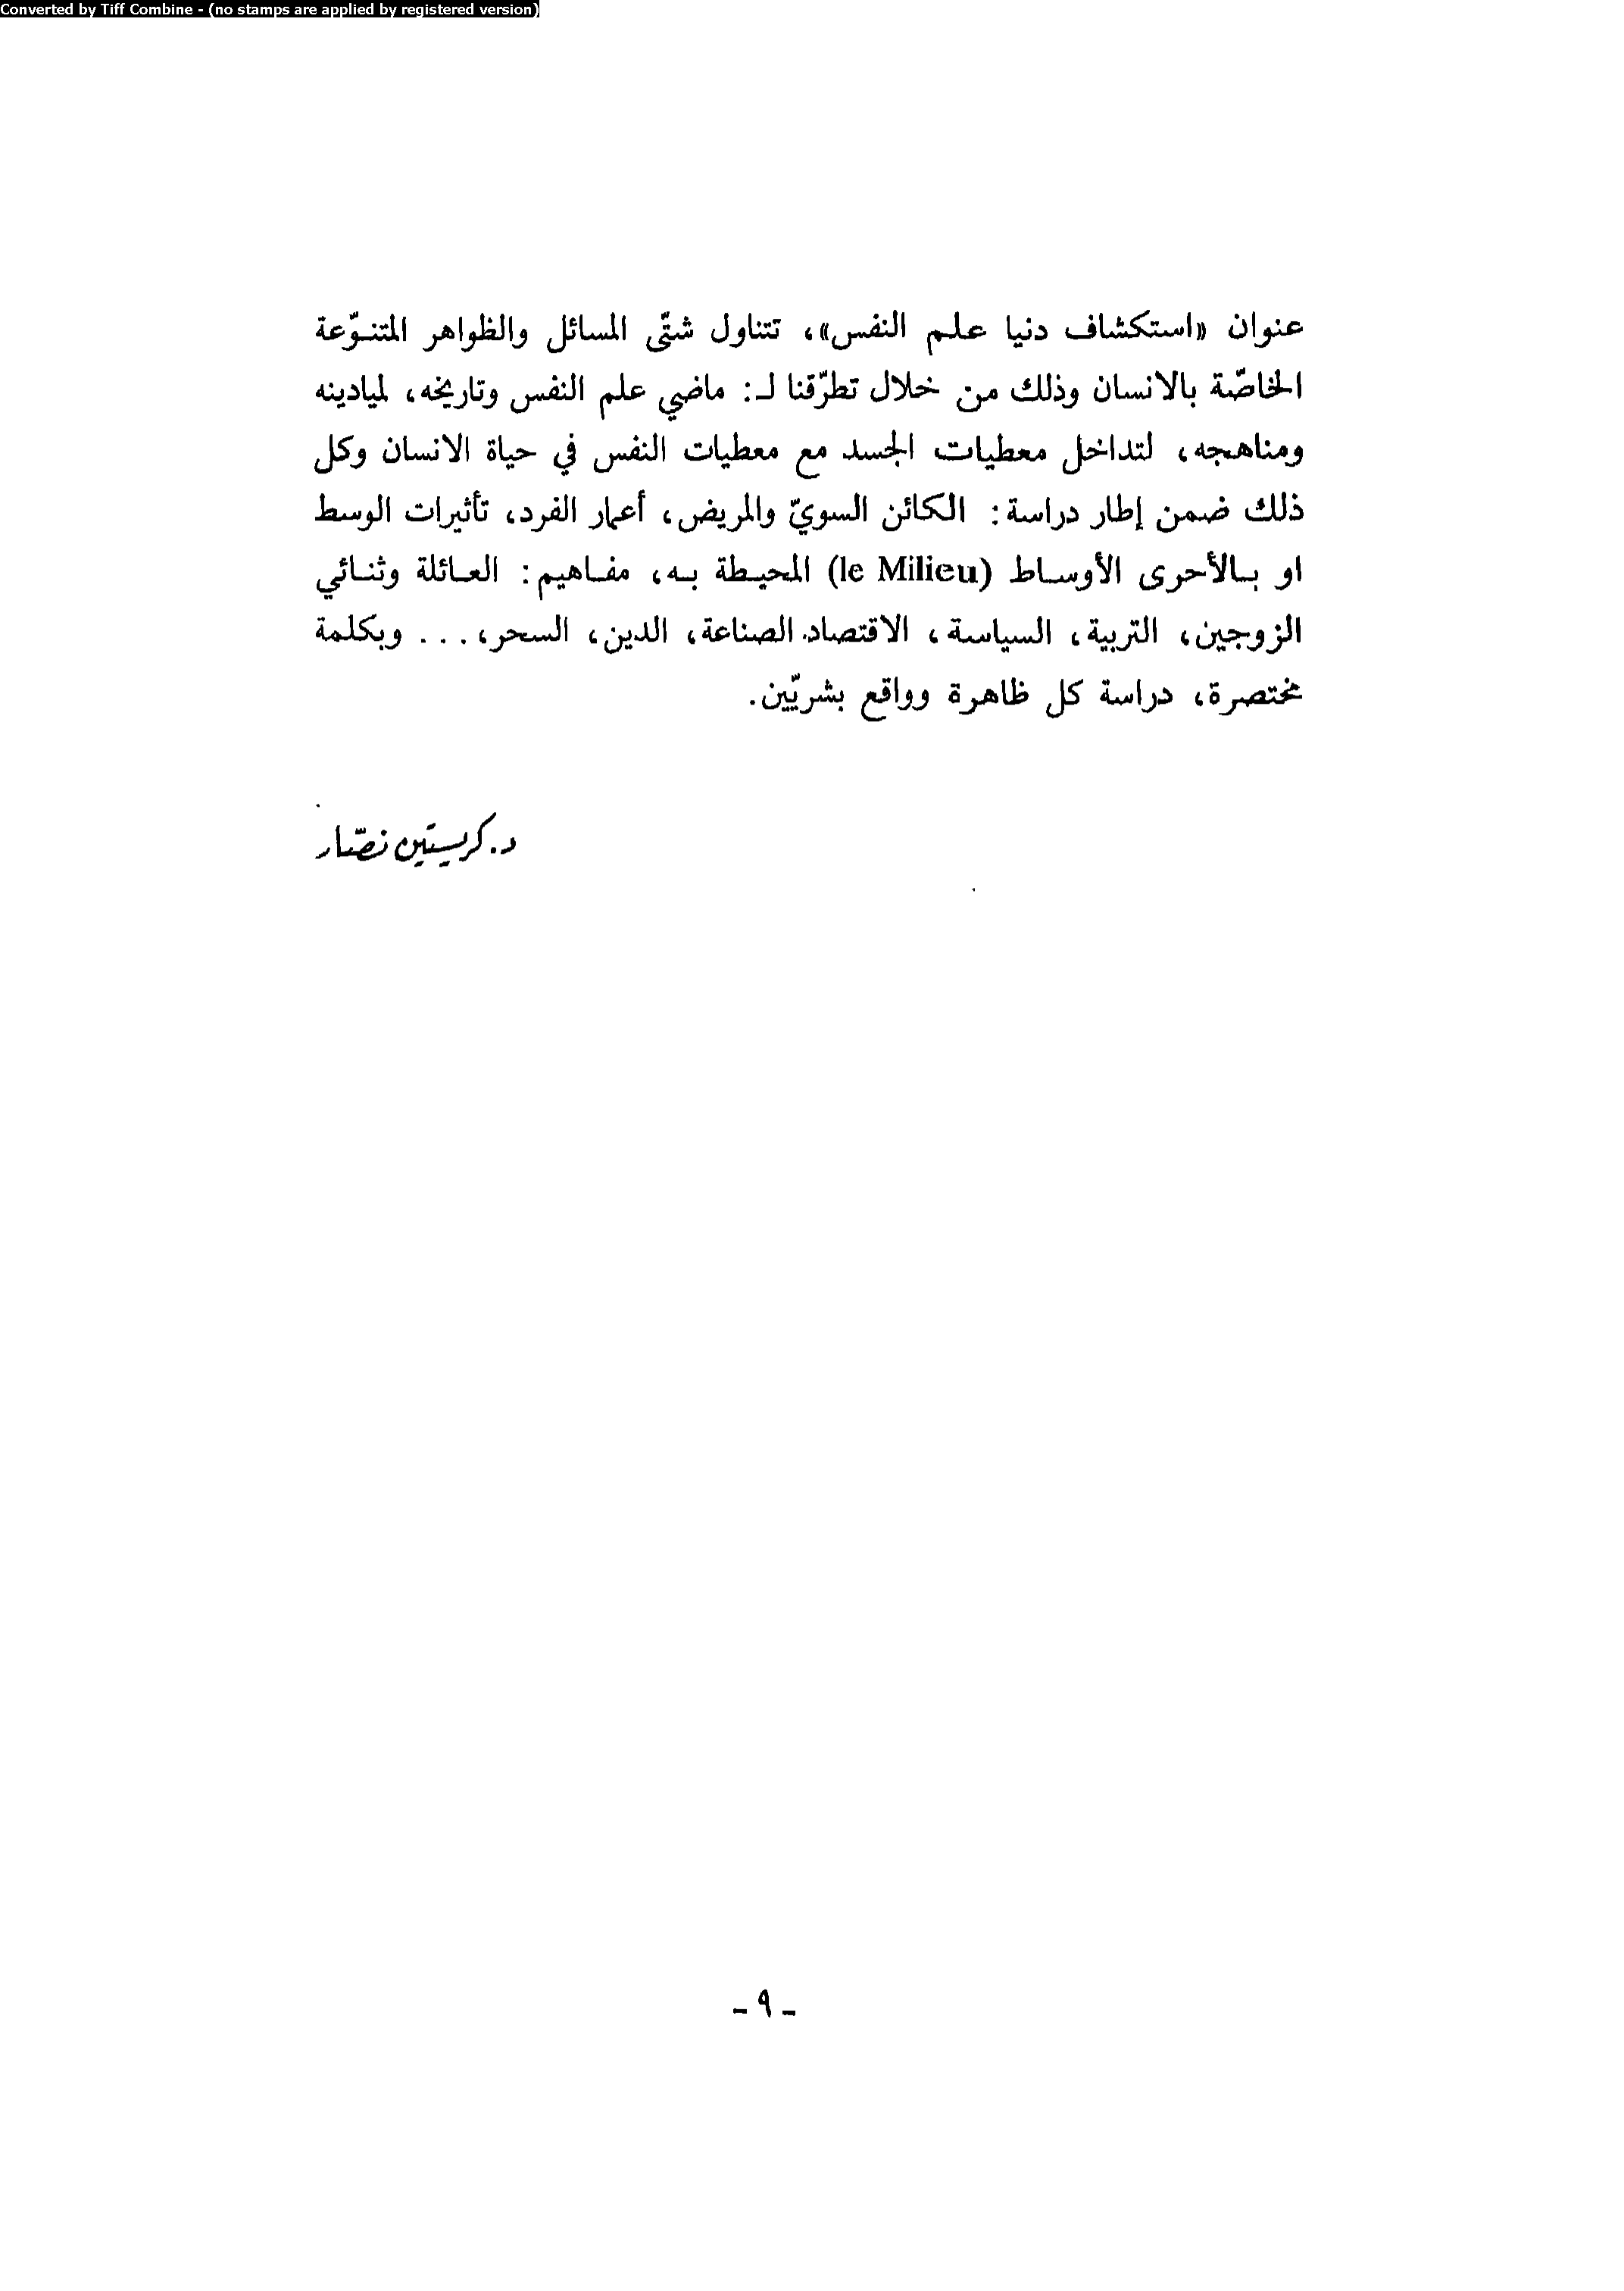 Converted by Tiff Combine - (no stamps are applied by registered version)
عنوان «استكشاف دنيا علم النفس»، تتناول شتّى المسائل والظواهر المتنوّعة
الخاصّة بالانسان وذلك من خلال تطرّقنا لـ: ماضي علم النفس وتاريخه، لميادينه
ومناهجه، لتداخل معطيات الجسد مع معطيات النفس في حياة الانسان وكل
ذلك ضمن إطار دراسة: الكائن السويّ والمريض، أعمار الفرد، تأثيرات الوسط
او بالأحرى الأوساط (le Milieu) المحيطة به، مفاهيم: العائلة وثنائي
الزوجين، التربية، السياسة، الاقتصاد. الصناعة، الدين، السحر،... وبكلمة
مختصرة، دراسة كل ظاهرة وواقع بشريّين.
د. كريستين نصّار
- ٩ -